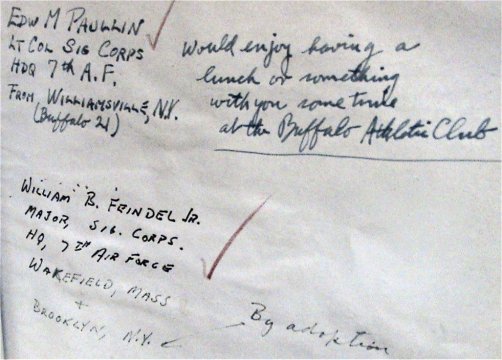 EDW M PAULLIN
LT COL SIG CORPS
HDQ 7th A.F.
FROM WILLIAMSVILLE, N.Y.
(Buffalo 21)
Would enjoy having a
lunch or something
with you some time
at the Buffalo Athletic Club
WILLIAM "B." FEINDEL JR.
MAJOR, SIG. CORPS.
HQ, 7TH AIR FORCE
WAKEFIELD, MASS
+
BROOKLYN, N.Y.
By adoption